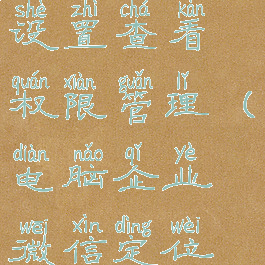 shè zhì chá kàn
设置查看
quán xiàn guǎn lǐ
权限管理（
diàn nǎo qǐ yè
电脑企业
wēi xìn dìng wèi
微信定位